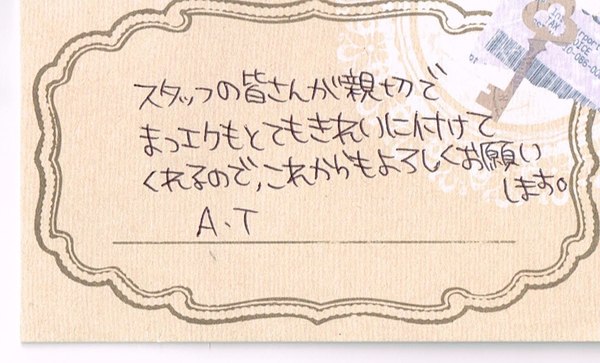 スタッフの皆さんが親切で
まつエクもとてもきれいに付けて
くれるので、これからもよろしくお願い
します。
A.T